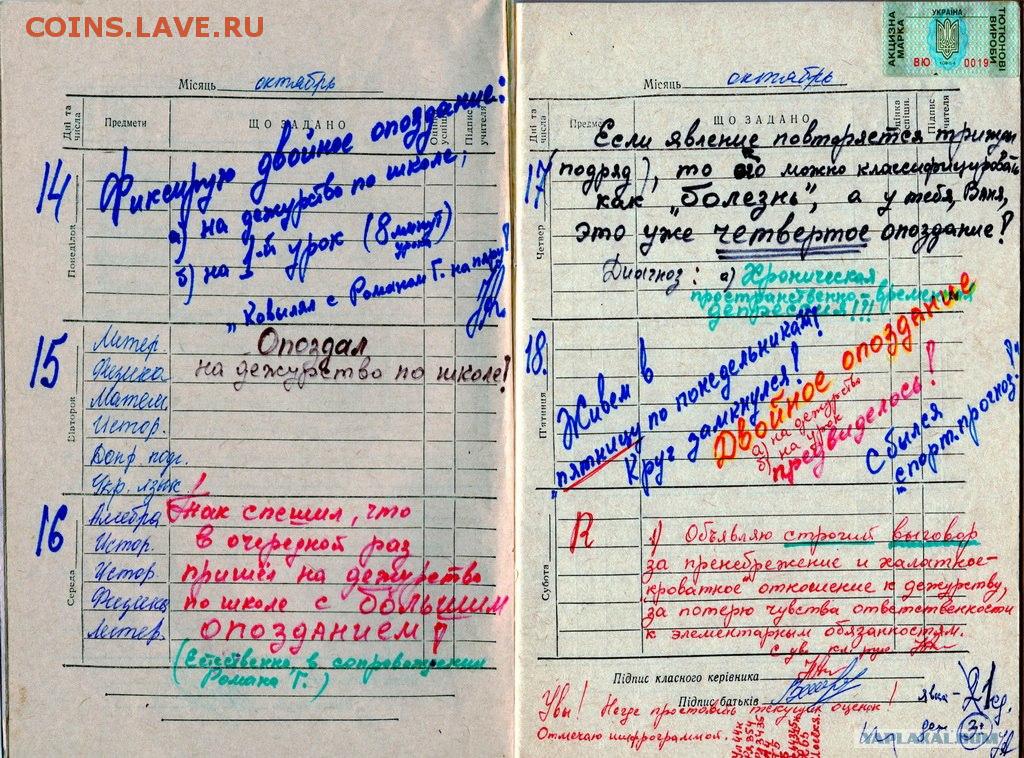 COINS.LAVE.RU
Місяць октябрь
Дні та числа
Предмети
ЩО ЗАДАНО
Підпис учителя
14
Понеділок
Фиксирую двойное опоздание:
а) на дежурство по школе,
б) на 1-й урок (8 минут урока)
„Ковылял с Романом Г. на пару!
15
Вівторок
Литер.
Физика
Матем.
Истор.
Укр. язык
Опоздал
на дежурство по школе!
16
Середа
Алгебра
Истор.
Истор.
Физика
Литер.
Так спешил, что
в очередной раз
пришёл на дежурство
по школе с большим
опозданием!
(Естественно, в сопровождении
Романа Г.)
УКРАЇНА
АКЦИЗНА МАРКА
ТЮТЮНОВІ ВИРОБИ
ВЮ 0019
Місяць октябрь
Дні та числа
ЩО ЗАДАНО
Підпис учителя
17
Четвер
Если явление повторяется трижды
(подряд), то его можно классифицировать
как „болезнь", а у тебя, Ваня,
это уже четвертое опоздание!
Диагноз: а) Хроническая
пространственно-временная
депрессия!!!
18.
П'ятниця
Живем в
„пятницу по понедельникам!
Круг замкнулся!
Двойное опоздание
а) на дежурство
б) на урок
предвиделось!
Сбылся
„спорт. прогноз!"
Субота
1) Объявляю строгий выговор
за пренебрежение и халатное-
кроватное отношение к дежурству,
за потерю чувства ответственности
к элементарным обязанностям.
С ув. кл. рук.
Підпис класного керівника
Підпис батьків
явка - 21
Увы! Негде проставить текущих оценок!
Отмечаю шифрограммой.
YAPLAKAL.COM